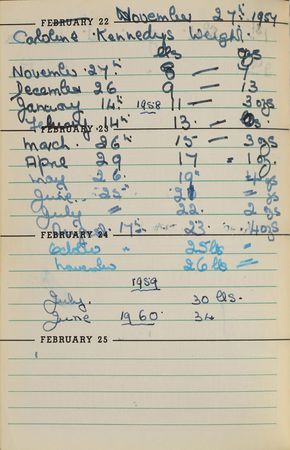 FEBRUARY 22 November 27th 1957
Caroline Kennedys Weight.
lbs ogs
November 27th 8 — 9
December 26 9 — 13
January 14th 1958 11 — 3 ogs
February 14th 13 —
FEBRUARY 23
March. 26th 15 — 3 ogs
April 29 17 " 1 og.
May 26. 19
June 25 21 =
July = 22. 2 ogs
17th 23. 4ogs
FEBRUARY 24
October " 25 lbs =
November 26 lbs =
1959
July. 30 lbs.
June 1960. 34
FEBRUARY 25